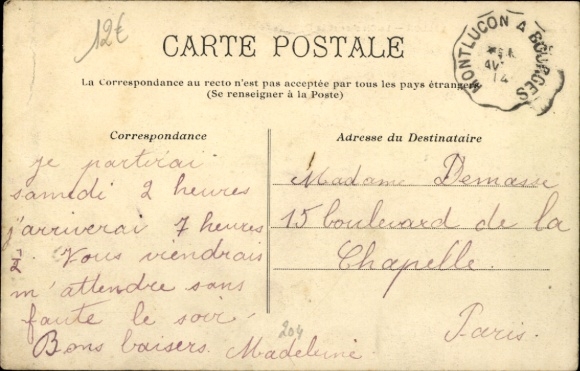 12€
CARTE POSTALE
MONTLUCON A BOURGES
AV
14
La Correspondance au recto n'est pas acceptée par tous les pays étrangers
(Se renseigner à la Poste)
Correspondance
je partirai
samedi 2 heures
j'arriverai 7 heures
1/2. Vous viendrais
m'attendre sans
faute le soir
Bons baisers. Madeleine
204
Adresse du Destinataire
Madame Demasse
15 boulevard de la
Chapelle.
Paris.